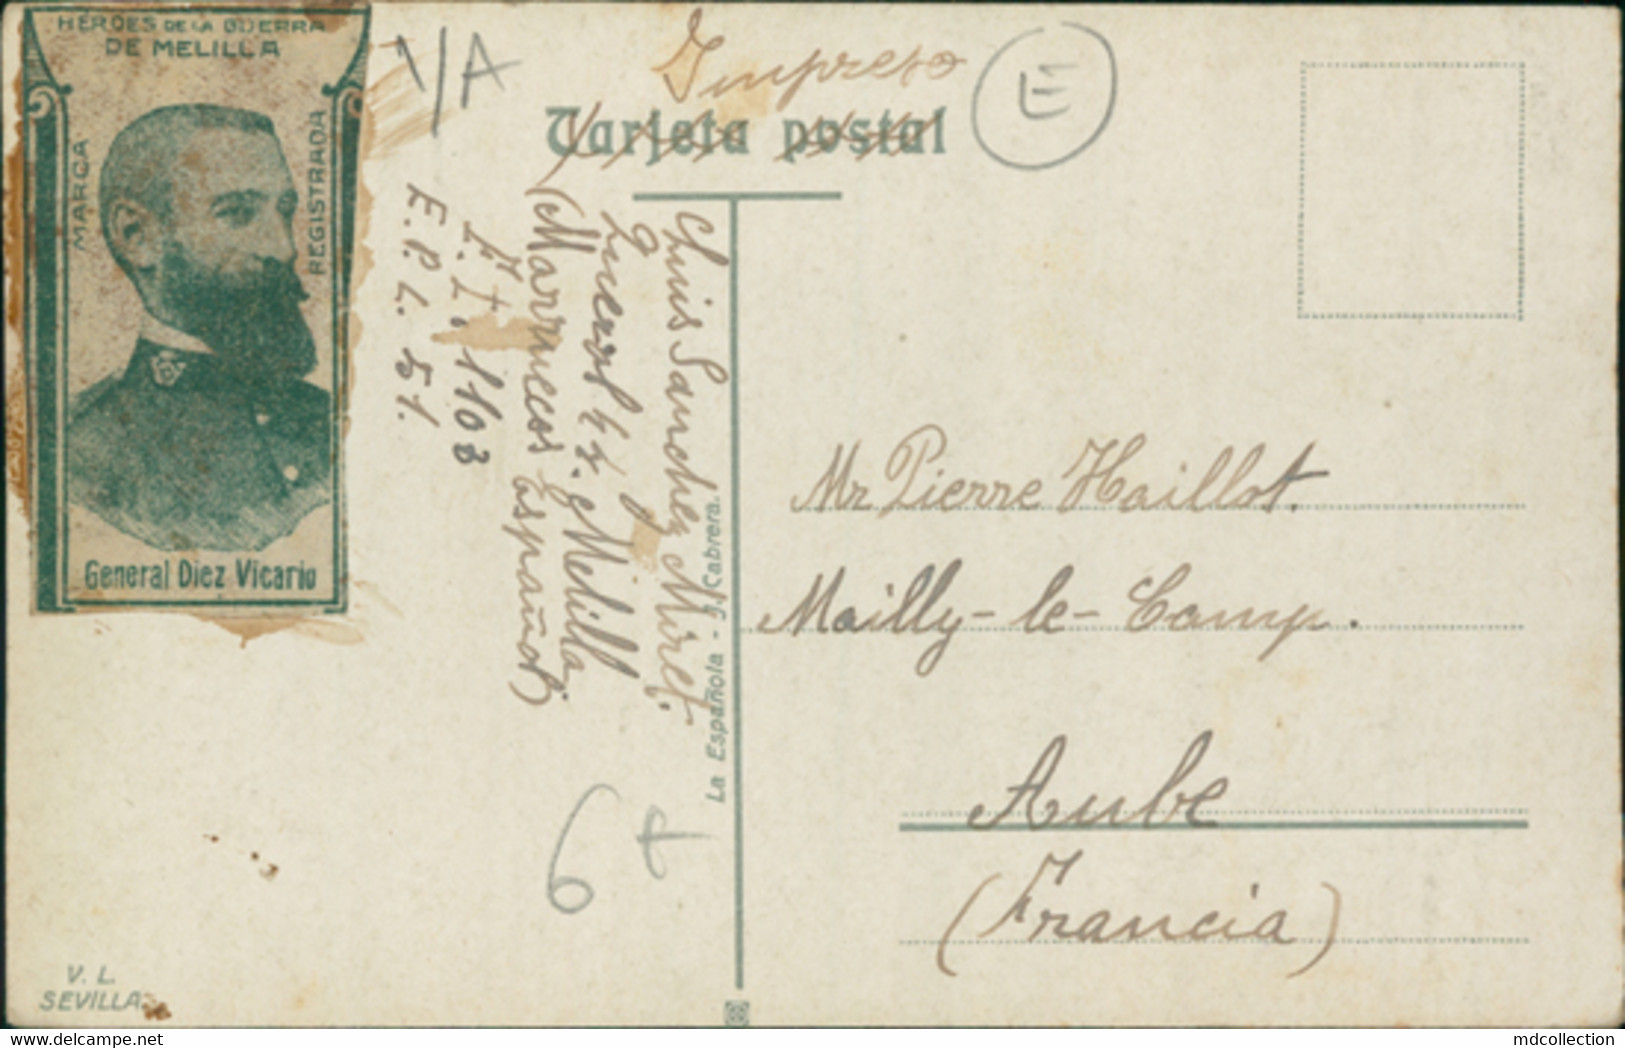 HÉROES DE LA GUERRA
DE MELILLA
MARCA
REGISTRADA
General Diez Vicario
1/A
Impreso
E
Tarjeta postal
Luis Sanchez Miret.
Querol 44. Melilla
(Marruecos español)
F.I. 1108
E.P.L. 51.
La Española - J. Cabrera.
Mr Pierre Haillot.
Mailly-le-Camp.
Aube
(Francia)
6+
V. L.
SEVILLA
mdcollection